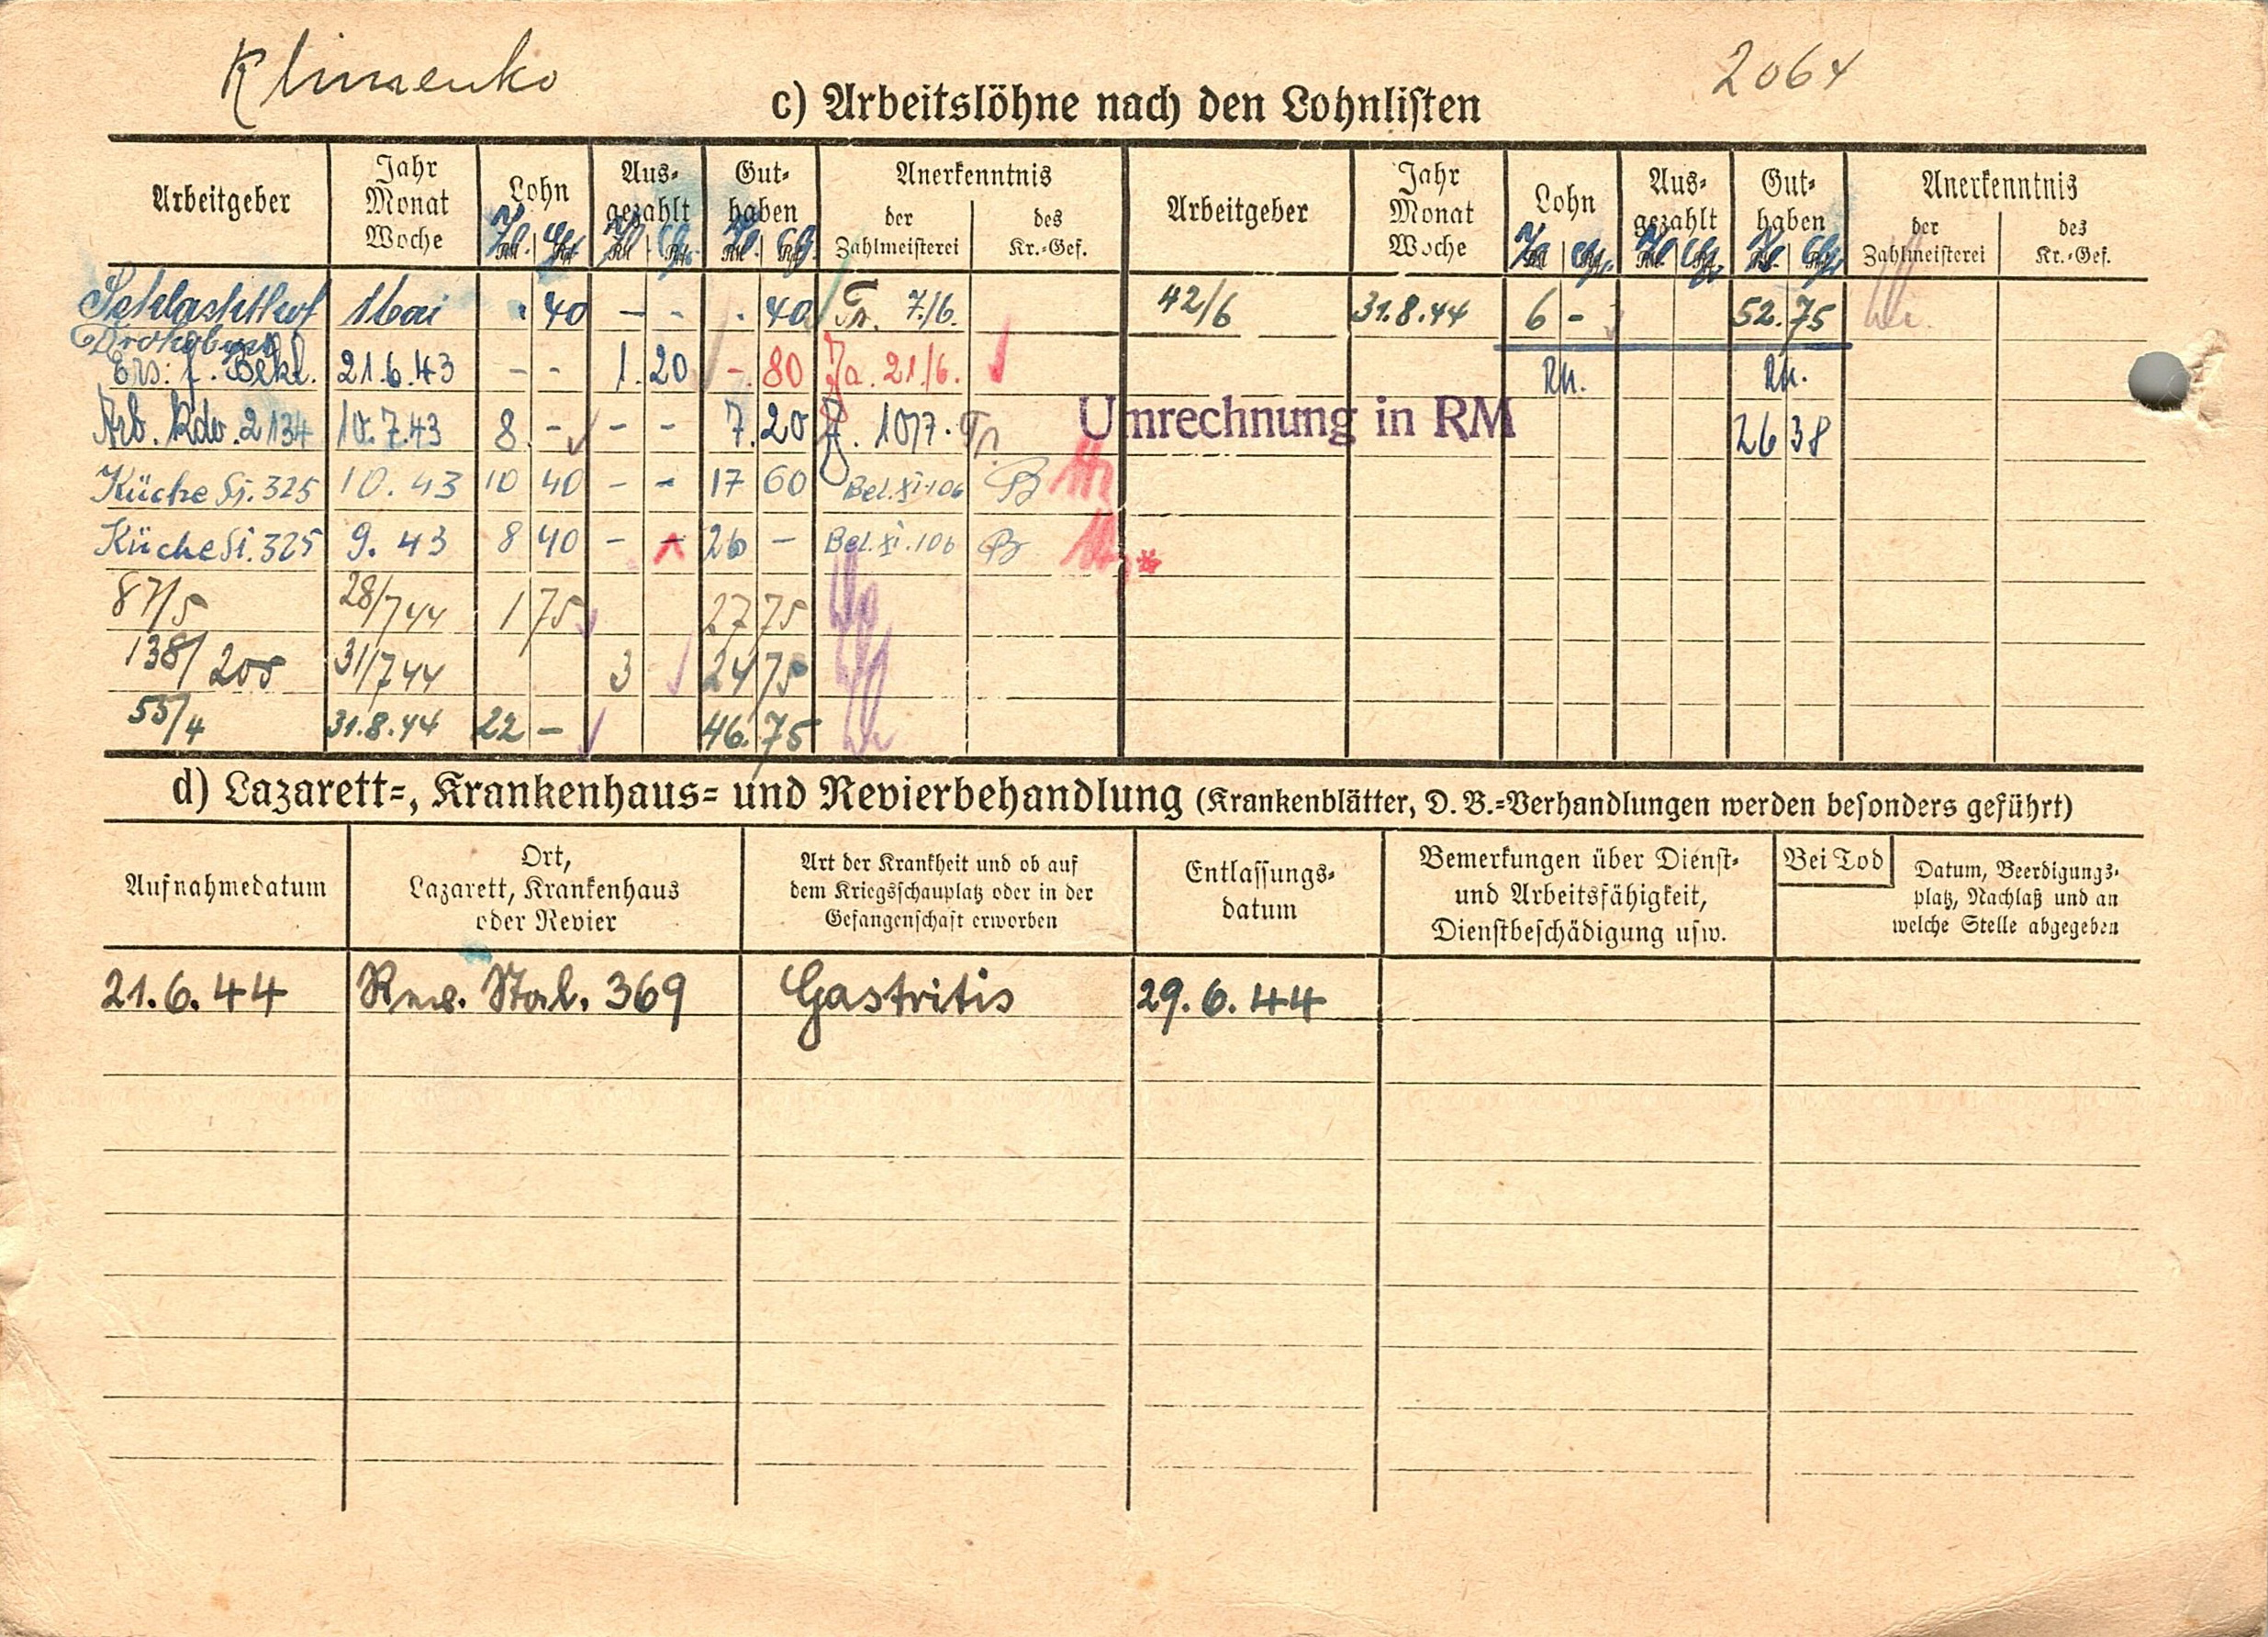 Klimenko
2064
c) Arbeitslöhne nach den Lohnlisten
Arbeitgeber
Jahr
Monat
Woche
Lohn
Aus-
gezahlt
Gut-
haben
Anerkenntnis
der
Zahlmeisterei
des
Kr.-Gef.
Arbeitgeber
Jahr
Monat
Woche
Lohn
Aus-
gezahlt
Gut-
haben
Anerkenntnis
der
Zahlmeisterei
des
Kr.-Gef.
Schlachthof Mai . 40 - - . 40 Tr. 7./6.
42/6 31.8.44 6 - 52.75
Ers. f. Bekl. 21.6.43 - - 1. 20 -. 80 21./6.
RM. RM.
Arb. Kdo. 2134 10.7.43 8 - - - 7.20 10/7. Tr.
Umrechnung in RM
26 38
Küche Si. 325 10. 43 10 40 - - 17 60 Bel. XI. 106
Küche Si. 325 9. 43 8 40 - - 26 - Bel. XI. 106
87/5 28/7 44 1 75 27 75
138/208 31/7 44 3 24 75
55/4 31.8.44 22 - 46.75
d) Lazarett-, Krankenhaus- und Revierbehandlung (Krankenblätter, D. B.-Verhandlungen werden besonders geführt)
Aufnahmedatum
Ort,
Lazarett, Krankenhaus
oder Revier
Art der Krankheit und ob auf
dem Kriegsschauplatz oder in der
Gefangenschaft erworben
Entlassungs-
datum
Bemerkungen über Dienst-
und Arbeitsfähigkeit,
Dienstbeschädigung usw.
Bei Tod
Datum, Beerdigungs-
platz, Nachlaß und an
welche Stelle abgegeben
21.6.44 Rev. Stal. 369 Gastritis 29.6.44